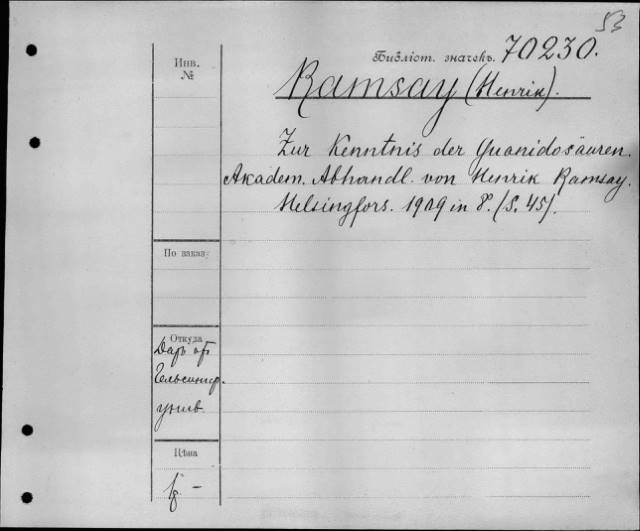 53
Библіот. значекъ. 70230.
Инв.
№
Ramsay (Henrik).
Zur Kenntnis der Guanidosäuren.
Akadem. Abhandl. von Henrik Ramsay.
Helsingfors. 1909 in 8. (S. 45).
По заказ:
Откуда
Даръ отъ
Гельсингф.
унив.
Цѣна